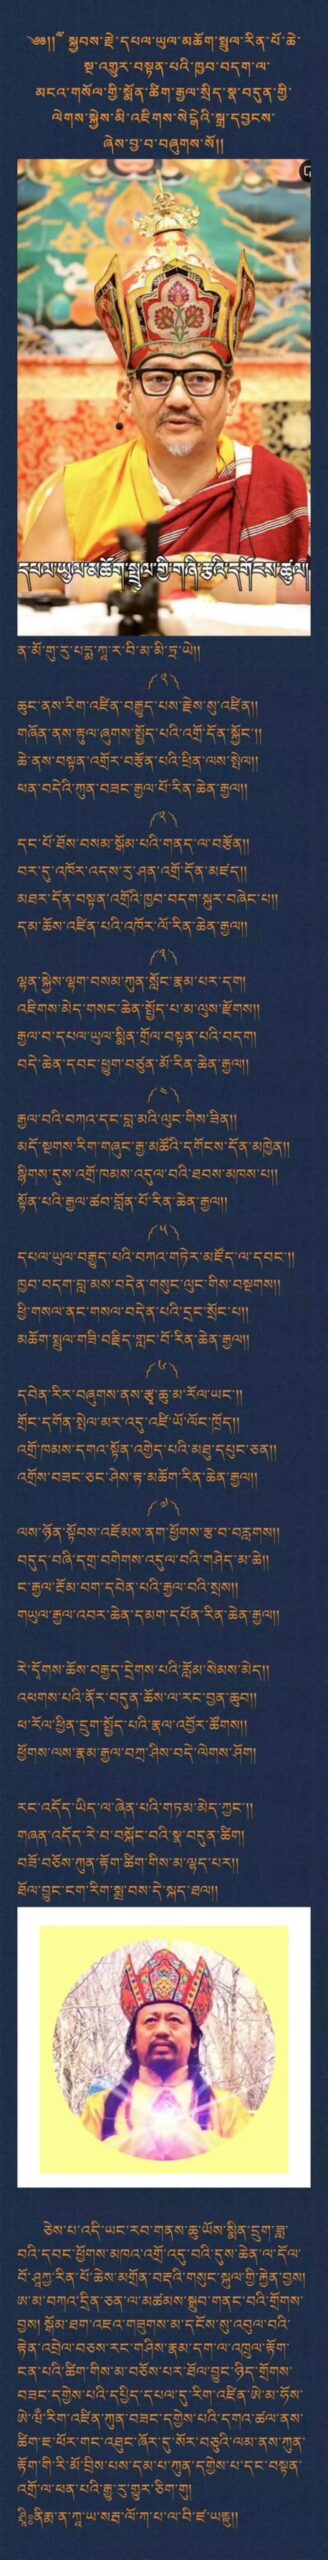 ༄༅།།༸སྐྱབས་རྗེ་དཔལ་ཡུལ་མཆོག་སྤྲུལ་རིན་པོ་ཆེ་
སྔ་འགྱུར་བསྟན་པའི་ཁྱབ་བདག་ལ་
མངའ་གསོལ་གྱི་སྨོན་ཚིག་རྒྱལ་སྲིད་སྣ་བདུན་གྱི་
ལེགས་སྐྱེས་མི་འཇིགས་སེངྒེའི་སྒྲ་དབྱངས་
ཞེས་བྱ་བ་བཞུགས་སོ།།
དཔལ་ཡུལ་མཆོག་སྤྲུལ་གྱི་གཞི་རྩའི་དགོངས་ཚུལ།
ན་མོ་གུ་རུ་པདྨ་ཀཱ་ར་བི་མ་མི་ཏྲ་ཡེ།།
༼༡༽
ཆུང་ནས་རིག་འཛིན་བརྒྱུད་པས་རྗེས་སུ་འཛིན།།
གཞོན་ནས་རྟུལ་ཞུགས་སྤྱོད་པའི་འགྲོ་དོན་སྐྱོང་།།
ཆེ་ནས་བསྟན་འགྲོར་བརྩོན་པའི་ཕྲིན་ལས་སྤེལ།།
ཕན་བདེའི་ཀུན་བཟང་རྒྱལ་པོ་རིན་ཆེན་རྒྱལ།།
༼༢༽
དང་པོ་ཐོས་བསམ་སྒོམ་པའི་གནད་ལ་བརྩོན།།
བར་དུ་འཁོར་འདས་རུ་ཤན་འགྲོ་དོན་མཛད།།
མཐར་དོན་བསྟན་འགྲོའི་ཁྱབ་བདག་སྐུར་བཞེང་པ།།
དམ་ཆོས་འཛིན་པའི་འཁོར་ལོ་རིན་ཆེན་རྒྱལ།།
༼༣༽
ལྷན་སྐྱེས་ལྷག་བསམ་ཀུན་སློང་རྣམ་པར་དག།
འཇིགས་མེད་གསང་ཆེན་སྤྱོད་པ་མ་ལུས་རྫོགས།།
རྒྱལ་བ་དཔལ་ཡུལ་སྨིན་གྲོལ་བསྟན་པའི་བདག།
བདེ་ཆེན་དབང་ཕྱུག་བཙུན་མོ་རིན་ཆེན་རྒྱལ།།
༼༤༽
རྒྱལ་བའི་བཀའ་དང་བླ་མའི་ལུང་གིས་ཟིན།།
མདོ་སྔགས་རིག་གཞུང་རྒྱ་མཚོའི་དགོངས་དོན་མཁྱེན།།
སྙིགས་དུས་འགྲོ་ཁམས་འདུལ་བའི་ཐབས་མཁས་པ།།
སྟོན་པའི་རྒྱལ་ཚབ་བློན་པོ་རིན་ཆེན་རྒྱལ།།
༼༥༽
དཔལ་ཡུལ་བརྒྱུད་པའི་བཀའ་གཏེར་མཛོད་ལ་དབང་།།
ཁྱབ་བདག་བླ་མས་བདེན་གསུང་ལུང་གིས་བསྔགས།།
ཕྱི་གསལ་ནང་གསལ་བདེན་པའི་དྲང་སྲོང་པ།།
མཆོག་སྤྲུལ་གཟི་བརྗིད་གླང་པོ་རིན་ཆེན་རྒྱལ།།
༼༦༽
དབེན་རིར་བཞུགས་ནས་རྩྭ་ཆུ་མ་རོལ་ཡང་།།
གྲོང་དགོན་སྤེལ་མར་འདུ་འཛི་ཡོ་ལོང་ཁྲོད།།
འགྲོ་ཁམས་དགའ་སྟོན་འགྱེད་པའི་མཐུ་དཔུང་ཅན།།
འགྲོས་བཟང་ཅང་ཤེས་རྟ་མཆོག་རིན་ཆེན་རྒྱལ།།
༼༧༽
ལས་ཉོན་སྟོབས་འཇོམས་ནག་ཕྱོགས་རྩ་བ་བརླགས།།
བདུད་བཞི་དགྲ་བགེགས་འདུལ་བའི་གཤེད་མ་ཆེ།།
ང་རྒྱལ་རྔོམ་བག་དབེན་པའི་རྒྱལ་བའི་སྲས།།
གཡུལ་རྒྱལ་འབར་ཆེན་དམག་དཔོན་རིན་ཆེན་རྒྱལ།།
རེ་དོགས་ཆོས་བརྒྱད་དྲེགས་པའི་རློམ་སེམས་མེད།།
འཕགས་པའི་ནོར་བདུན་ཆོས་ལ་རང་བྱན་ཆུབ།།
ཕ་རོལ་ཕྱིན་དྲུག་སྤྱོད་པའི་རྣལ་འབྱོར་ཚོགས།།
ཕྱོགས་ལས་རྣམ་རྒྱལ་བཀྲ་ཤིས་བདེ་ལེགས་ཤོག།
རང་འདོད་ཡིད་ལ་ཞེན་པའི་གཏམ་མེད་ཀྱང་།།
གཞན་འདོད་རེ་བ་བསྐོང་བའི་སྣ་བདུན་ཚིག།
བཟོ་བཅོས་ཀུན་རྟོག་ཚིག་གིས་མ་ལྷད་པར།།
ཐོལ་བྱུང་ངག་རིག་སྨྲ་བས་དེ་སྐད་ཐལ།།
ཅེས་པ་འདི་ཡང་རབ་གནས་ཆུ་ཡོས་སྨིན་དྲུག་ཟླ་
བའི་དབང་ཕྱོགས་མཁའ་འགྲོ་འདུ་བའི་དུས་ཆེན་ལ་དོལ་
པོ་ཤཱཀྱ་རིན་པོ་ཆེས་མགྲོན་བརྡའི་གསུང་སྐུལ་གྱི་རྐྱེན་བྱས།
ཨ་མ་བཀའ་དྲིན་ཅན་ལ་མཚམས་སྒྲུབ་གནང་བའི་གྲོགས་
བྱས། སྒོམ་ཐག་འཇའ་གཟུགས་མ་དངོས་སུ་འབུལ་བའི་
རྟེན་འབྲེལ་བཅས་རང་གཤིས་རྣམ་དག་ལ་འཁྲུལ་རྟོག་
ངན་པའི་ཚིག་གིས་མ་བཅོས་པར་ཐོལ་བྱུང་ཉིད་གྲོགས་
བཟང་དགྱེས་པའི་དཔྱིད་དཔལ་དུ་རིག་འཛིན་ཨེ་མ་ཧོས་
རིག་འཛིན་ཀུན་བཟང་དགྱེས་པའི་དགའ་ཚལ་ནས་
ཚིག་ཇ་ཕོར་གང་འཐུང་ཞོར་དུ་སོར་བཅུའི་ལམ་ནས་ཀུན་
རྟོག་གི་རི་མོ་བྲིས་པས་དམ་པ་ཀུན་དགྱེས་པ་དང་བསྟན་
འགྲོ་ལ་ཕན་པའི་རྒྱུ་རུ་གྱུར་ཅིག་གུ།